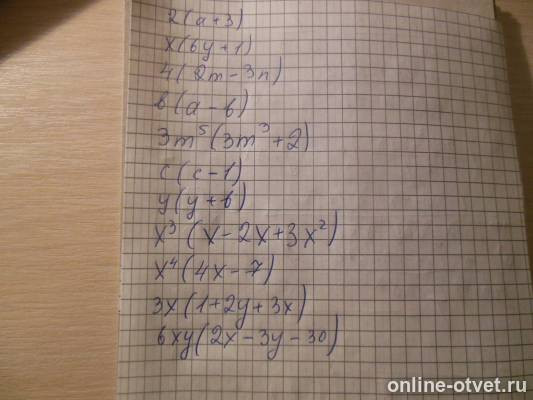 2(a+3)
x(6y+1)
4(2m-3n)
b(a-b)
3m⁵(3m³+2)
c(c-1)
y(y+b)
x³(x-2x+3x²)
x⁴(4x-7)
3x(1+2y+3x)
6xy(2x-3y-30)
online-otvet.ru